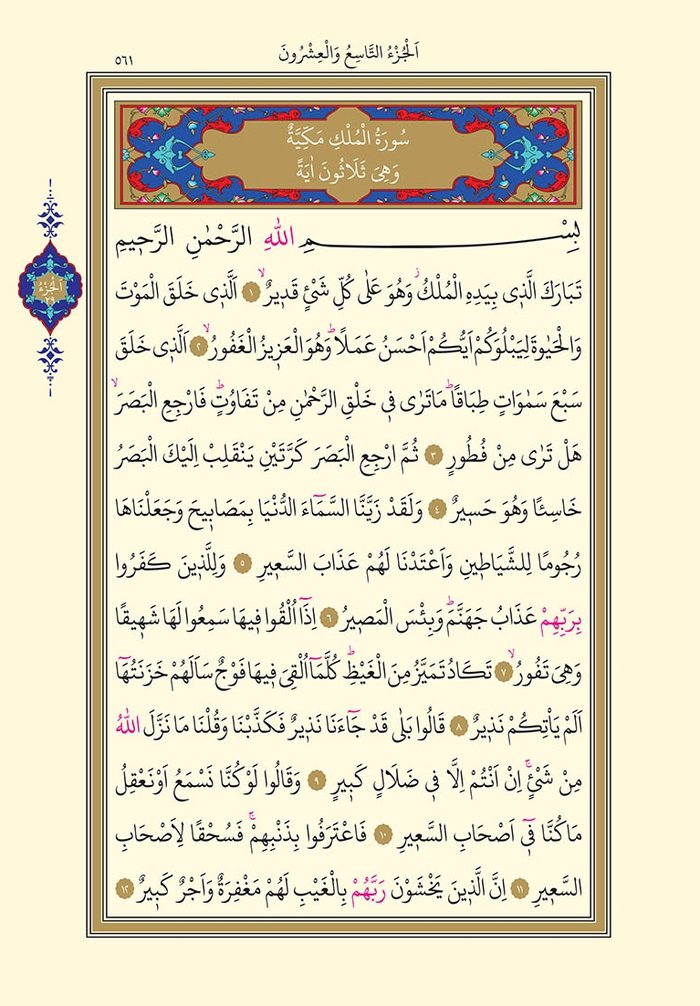 اَلْجُزْءُ التَّاسِعُ وَالْعِشْرُونَ
٥٦١
سُورَةُ الْمُلْكِ مَكِّيَّةٌ
وَهِىَ ثَلَاثُونَ اٰيَةً
اَلْجُزْءُ
٢٩
بِسْمِ اللّٰهِ الرَّحْمٰنِ الرَّحٖيمِ
تَبَارَكَ الَّذٖى بِيَدِهِ الْمُلْكُۘ وَهُوَ عَلٰى كُلِّ شَىْءٍ قَدٖيرٌۙ ﴿١﴾ اَلَّذٖى خَلَقَ الْمَوْتَ
وَالْحَيٰوةَ لِيَبْلُوَكُمْ اَيُّكُمْ اَحْسَنُ عَمَلًاؕ وَهُوَ الْعَزٖيزُ الْغَفُورُۙ ﴿٢﴾ اَلَّذٖى خَلَقَ
سَبْعَ سَمٰوَاتٍ طِبَاقًاؕ مَا تَرٰى فٖى خَلْقِ الرَّحْمٰنِ مِنْ تَفَاوُتٍؕ فَارْجِعِ الْبَصَرَۙ
هَلْ تَرٰى مِنْ فُطُورٍ ﴿٣﴾ ثُمَّ ارْجِعِ الْبَصَرَ كَرَّتَيْنِ يَنْقَلِبْ اِلَيْكَ الْبَصَرُ
خَاسِئًا وَهُوَ حَسٖيرٌ ﴿٤﴾ وَلَقَدْ زَيَّنَّا السَّمَٓاءَ الدُّنْيَا بِمَصَابٖيحَ وَجَعَلْنَاهَا
رُجُومًا لِلشَّيَاطٖينِ وَاَعْتَدْنَا لَهُمْ عَذَابَ السَّعٖيرِ ﴿٥﴾ وَلِلَّذٖينَ كَفَرُوا
بِرَبِّهِمْ عَذَابُ جَهَنَّمَؕ وَبِئْسَ الْمَصٖيرُ ﴿٦﴾ اِذَٓا اُلْقُوا فٖيهَا سَمِعُوا لَهَا شَهٖيقًا
وَهِىَ تَفُورُۙ ﴿٧﴾ تَكَادُ تَمَيَّزُ مِنَ الْغَيْظِؕ كُلَّمَٓا اُلْقِىَ فٖيهَا فَوْجٌ سَاَلَهُمْ خَزَنَتُهَٓا
اَلَمْ يَاْتِكُمْ نَذٖيرٌ ﴿٨﴾ قَالُوا بَلٰى قَدْ جَٓاءَنَا نَذٖيرٌ فَكَذَّبْنَا وَقُلْنَا مَا نَزَّلَ اللّٰهُ
مِنْ شَىْءٍۚ اِنْ اَنْتُمْ اِلَّا فٖى ضَلَالٍ كَبٖيرٍ ﴿٩﴾ وَقَالُوا لَوْ كُنَّا نَسْمَعُ اَوْ نَعْقِلُ
مَا كُنَّا فٖٓى اَصْحَابِ السَّعٖيرِ ﴿١٠﴾ فَاعْتَرَفُوا بِذَنْبِهِمْۚ فَسُحْقًا لِاَصْحَابِ
السَّعٖيرِ ﴿١١﴾ اِنَّ الَّذٖينَ يَخْشَوْنَ رَبَّهُمْ بِالْغَيْبِ لَهُمْ مَغْفِرَةٌ وَاَجْرٌ كَبٖيرٌ ﴿١٢﴾